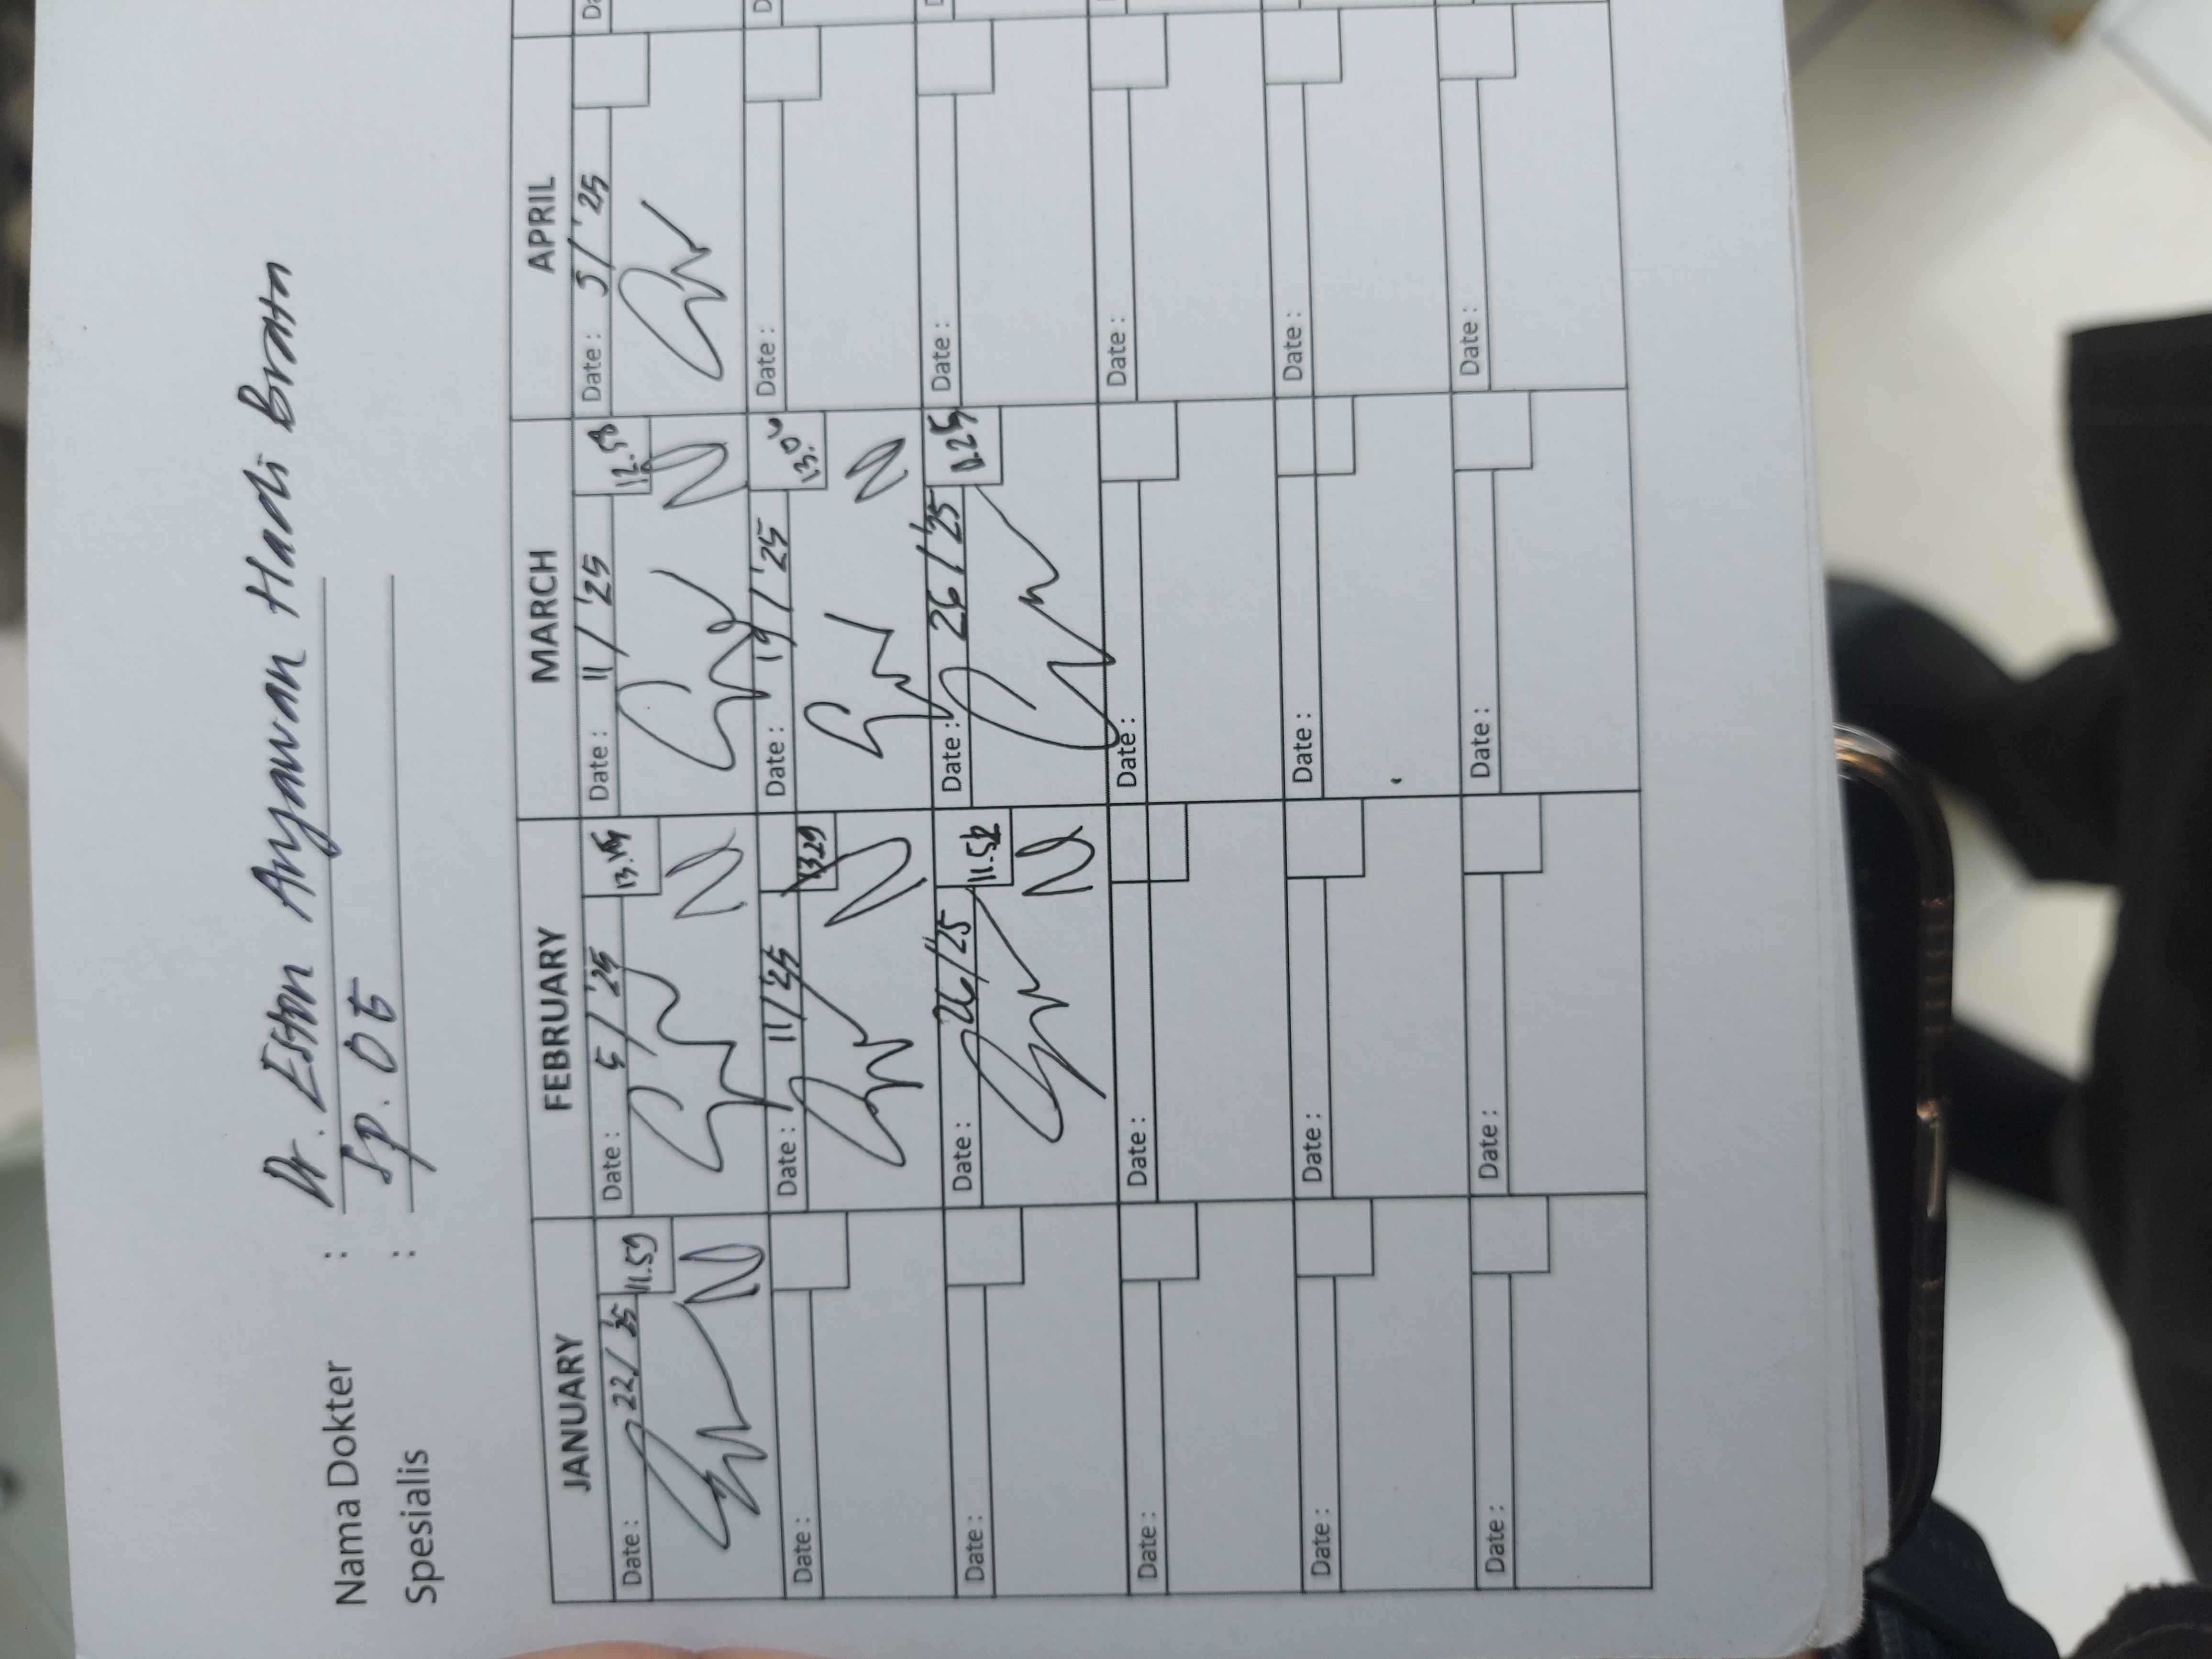 Nama Dokter : Dr. Eston Aryawan Hadi Brata
Spesialis : Sp. OG
JANUARY FEBRUARY MARCH APRIL
Date : 22/'25 11.59 Date : 5/'25 Date : 11/'25 12.58 Date : 5/'25
Date : Date : 11/'25 13.29 Date : 19/'25 13.06 Date :
Date : Date : 26/'25 11.52 Date : 26/'25 Date :
Date : Date : Date : Date :
Date : Date : Date : Date :
Date : Date : Date : Date :